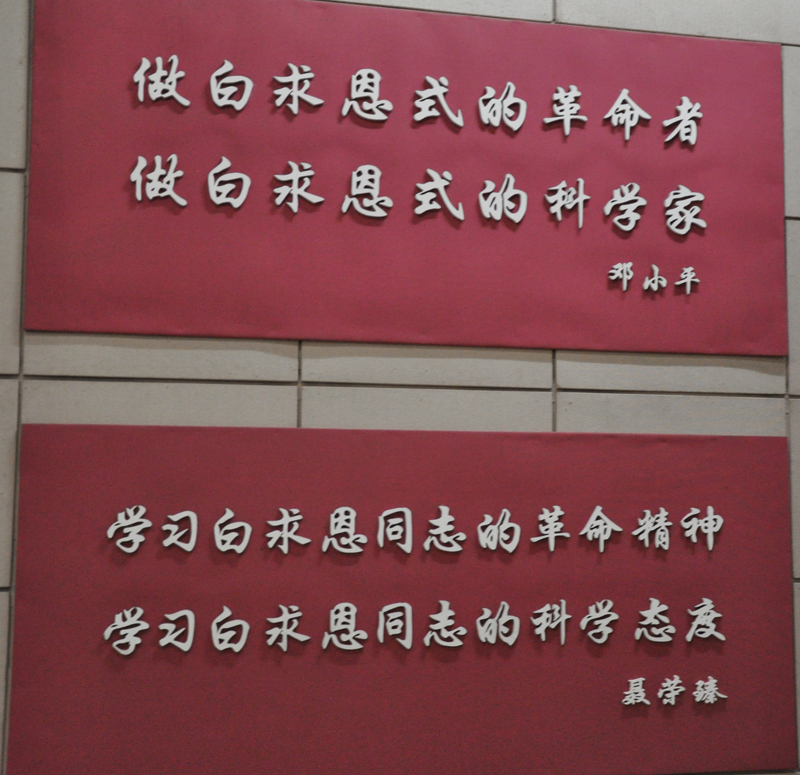 做白求恩式的革命者
做白求恩式的科学家
邓小平
学习白求恩同志的革命精神
学习白求恩同志的科学态度
聂荣臻